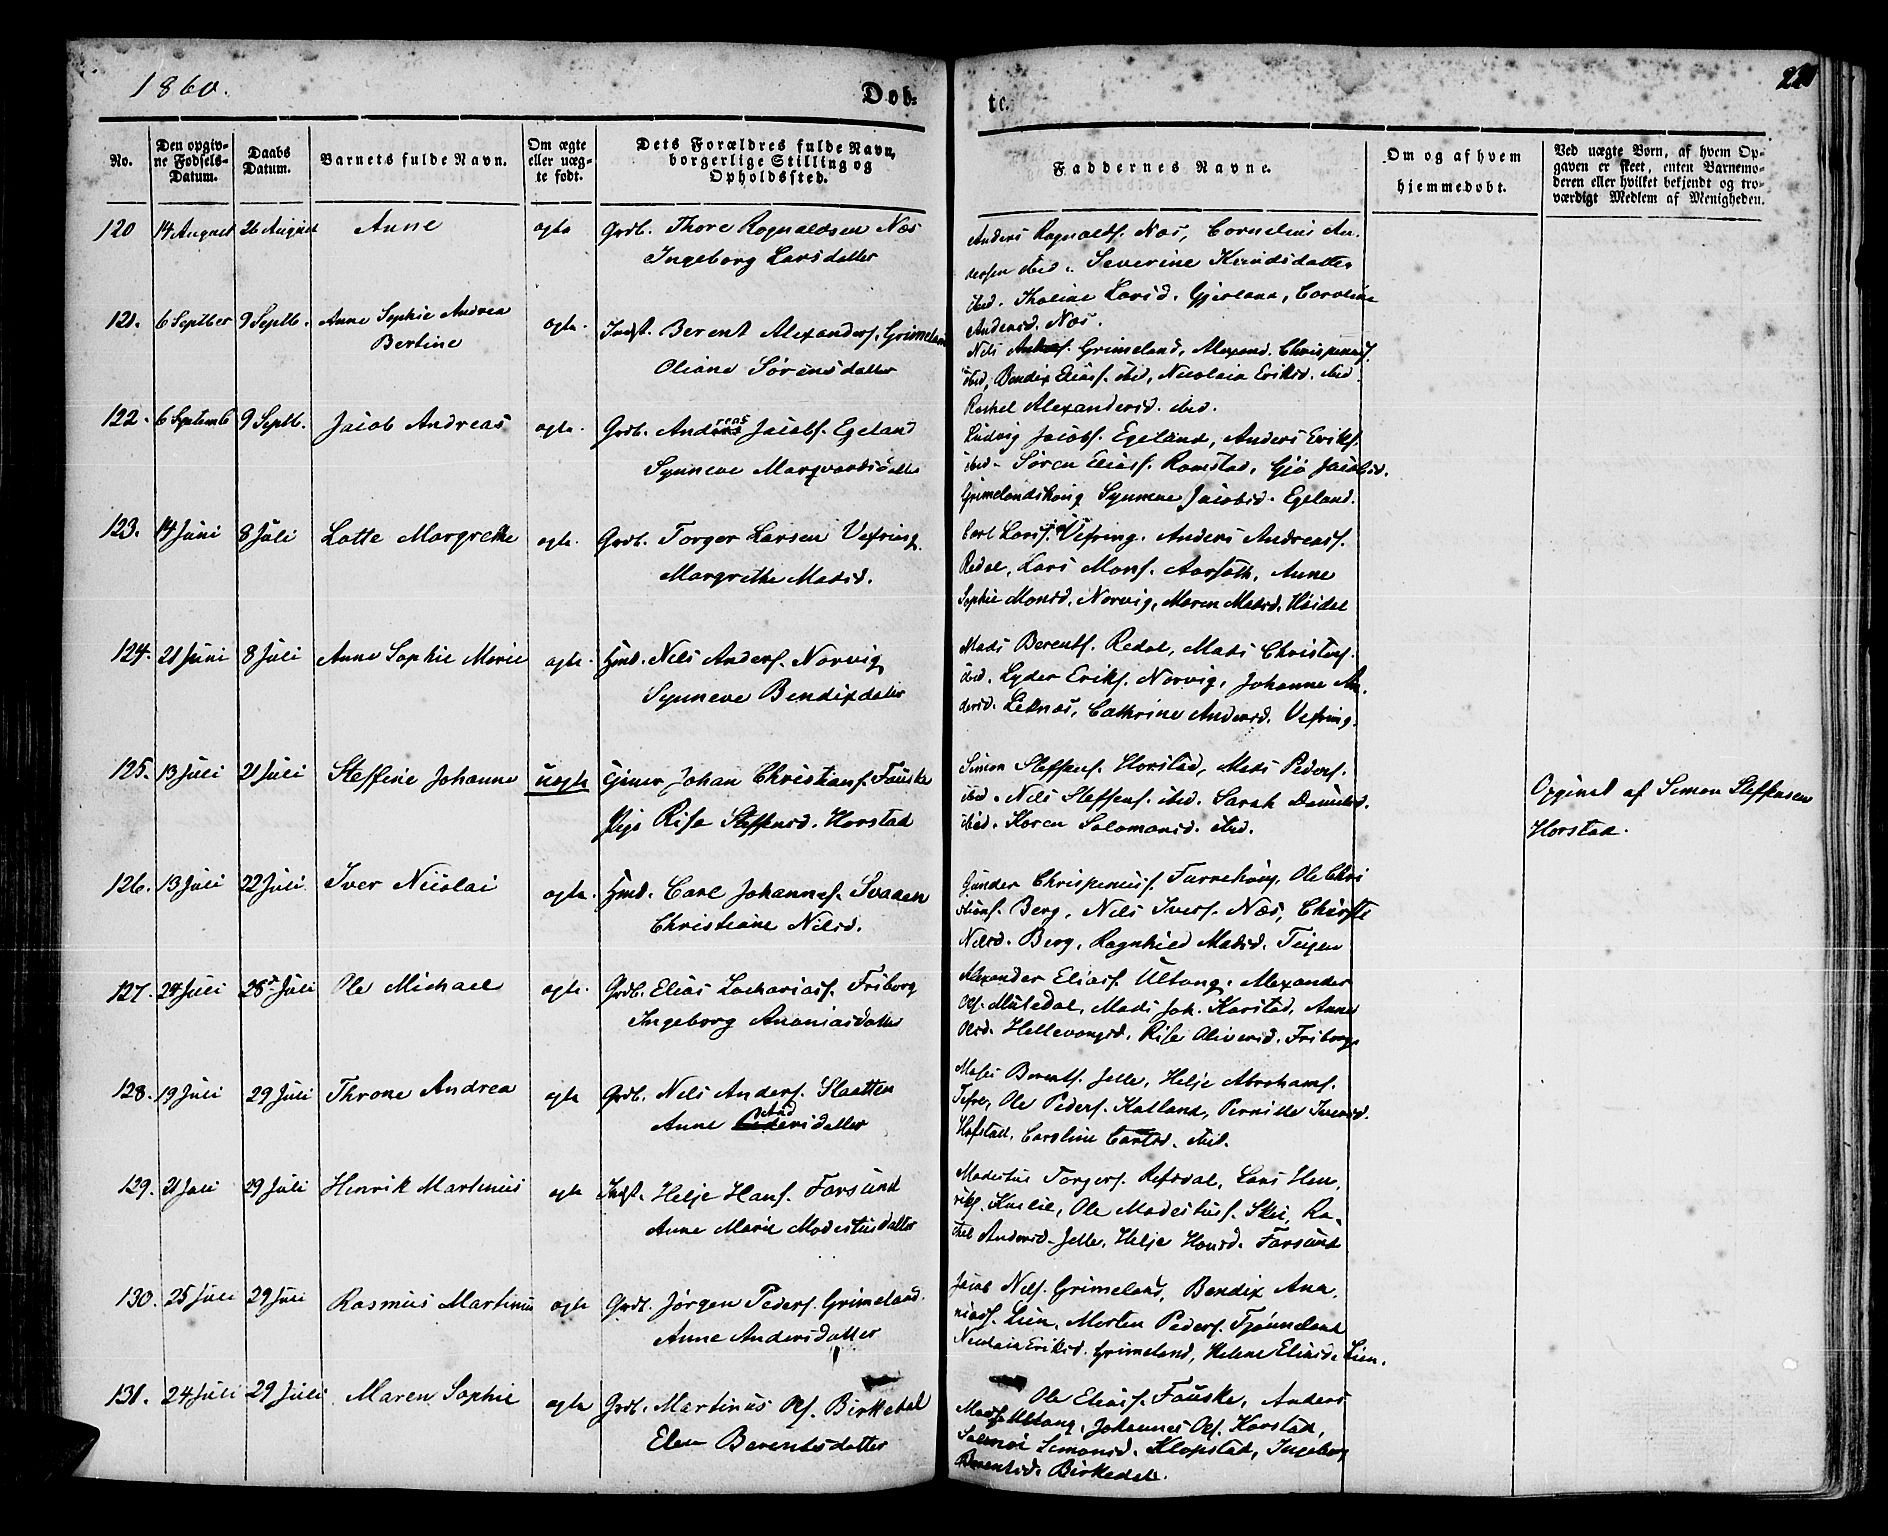 1860.
Døb-
te.
221
No.
Den opgiv-
ne Fødsels-
Datum.
Daabs
Datum.
Barnets fulde Navn.
Om ægte
eller uæg-
te født.
Dets Forældres fulde Navn,
borgerlige Stilling og
Opholdssted.
Faddernes Navne.
Om og af hvem
hjemmedøbt.
Ved uægte Børn, af hvem Op-
gaven er skeet, enten Barnemo-
deren eller hvilket bekjendt og tro-
værdigt Medlem af Menigheden.
120 14 August 26 August Anne ægte Grdb. Thore Rognaldsen Næs
Ingeborg Larsdatter
Anders Rognaldf. Næs, Cornelius An-
dersen ibid. Severine Knudsdatter
ibid. Larsd. Gjerland, Caroline
Andersd. Næs.
121. 6 Septber 9 Septb. Anne Sophie Andrea
Bertine
ægte. Indst. Berent Alexanderf. Grimeland
Oliane Sørensdatter
Nils Grimeland, Alexand. Chrispenusf.
ibid, Bendix Eliasf. ibid, Nicolaia Eriksd. ibid.
Rachel Alexandersd. ibid.
122. 6 Septemb 9 Septb. Jacob Andreas ægte. Grdb. Andreas Jacobf. Egeland
Synneve Marqvardsdatter
Ludvig Jacobf. Egeland, Anders Erikf.
ibid. Søren Eliasf. Ramstad, Gjø Jacobsd.
Grimelandshoug Synneve Jacobsd. Egeland.
123. 14 Juni 8 Juli Lotte Margrethe ægte. Grdb. Torger Larsen Vefring
Margrethe Madsd.
Carl Larsf. Vefring. Anders Andreasf.
Redal, Lars Monsf. Aarsæth, Anne
Sophie Monsd. Norvig, Maren Madsd. Høidal
124. 21 Juni 8 Juli Anne Sophie Marie ægte. Hmd. Nils Andersf. Norvig
Synneve Bendixdatter
Mads Berentf. Redal, Mads Christenf.
ibid. Lyder Erikf. Norvig, Johanne An-
dersd. Leknæs, Cathrine Andersd. Vefring.
125. 13 Juli 21 Juli Steffine Johanne uægte Johan Christianf. Fauske
Pige Rise Steffensd. Horstad
Simon Steffenf. Horstad, Mads Pederf.
ibid. Nils Steffenf. ibid. Sarah Danielsd.
ibid. Karen Salomonsd. ibid.
Opgivet af Simon Steffensen
Horstad.
126. 13 Juli 22 Juli Iver Nicolai ægte. Hmd. Carl Johannesf. Svaaen
Christiane Nilsd.
Gunder Chrispenusf. Furrehoug, Ole Chri
stianf. Berg, Nils Iverf. Næs, Christi
Nilsd. Berg, Ragnhild Madsd. Teigen
127. 24 Juli 28de Juli Ole Michael ægte. Grdb. Elias Zachariasf. Friborg
Ingeborg Ananiasdatter
Alexander Eliasf. Ultang, Alexander
Olf. Muledal, Mads Joh. Karstad, Anne
Olsd. Hellevang, Rise Oliversd. Friborg
128. 19 Juli 29 Juli Throne Andrea ægte Grdb. Nils Andersf. Slaatten
Anne Andersdatter
Moses Berentf. Jelle, Helje Abrahamf.
Tefre, Ole Pederf. Kalland, Pernille Iversd.
Hofstad, Caroline ibid.
129. 21 Juli 29 Juli Henrik Martinus ægte Indst. Helje Hansf. Farsund
Anne Marie Modestusdatter
Modestus Torgerf. Refsdal, Lars Hen-
rikf. Kuslie, Ole Modestusf. Skei, Ra-
chel Andersd. Jelle, Helje Hansd. Farsund
130. 25 Juli 29 Juli Rasmus Martinus ægte Grdb. Jørgen Pedersf. Grimeland.
Anne Andersdatter
Jacob Nilsf. Grimeland, Bendix Ana-
niasf. Lien, Morten Pederf. Tjønneland
Nicolaia Eriksd. Grimeland, Helene Eliasd. Lien.
131. 24 Juli 29 Juli Maren Sophie ægte Grdb. Martinus Olf. Birkedal
Elen Berentsdatter
Ole Eliasf. Fauske, Anders
Madsf. Ultang, Johannes Olf. Karstad,
Simonsd. Klopstad, Ingeborg
Berentsd. Birkedal.